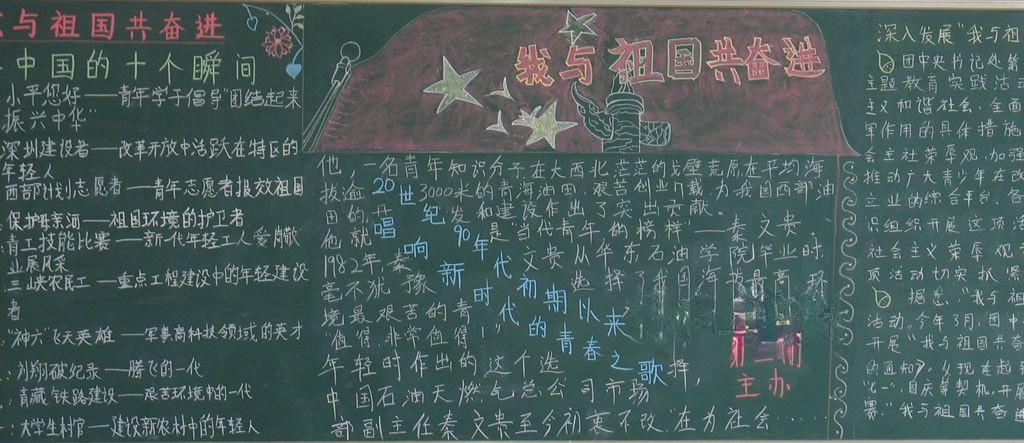 与祖国共奋进
中国的十个瞬间
小平您好——青年学子倡导"团结起来
振兴中华"
深圳建设者——改革开放中活跃在特区的
年轻人
西部计划志愿者——青年志愿者报效祖国
保护母亲河——祖国环境的护卫者
青工技能比赛——新一代年轻工人爱岗敬
业展风采
三峡农民工——重点工程建设中的年轻建设
者
"神六"飞天英雄——军事高科技领域的英才
刘翔破纪录——腾飞的一代
青藏铁路建设——艰苦环境中的一代
大学生村官——建设新农村中的年轻人
我与祖国共奋进
他,一名青年知识分子在大西北茫茫的戈壁荒原在平均海
拔逾3000米的青海油田,艰苦创业17载,为我国西部油
田的开发和建设作出了突出贡献。
他就是"当代青年的榜样"——秦文贵,
1982年,秦文贵从华东石油学院毕业时,
毫不犹豫选择了我国海拔最高、环
境最艰苦的青
"值得,非常值得!"
年轻时作出的这个选择,
中国石油天燃气总公司市场
部副主任秦文贵至今初衷不改"在为社会……
20世纪90年代初期以来
唱响新时代的青春之歌
主办
深入发展"我与祖
团中央书记处第
主题教育实践活动
主义和谐社会、全面
军作用的具体措施
会主社荣辱观,加强
推动广大青少年在改
立业的综合平台,各
识组织开展这项活
社会主义荣辱观
项活动切实抓紧
据悉,"我与祖
活动。今年3月,团中
开展"我与祖国共奋
的通知》,
国庆等契机,开展
赛""我与祖国共奋进